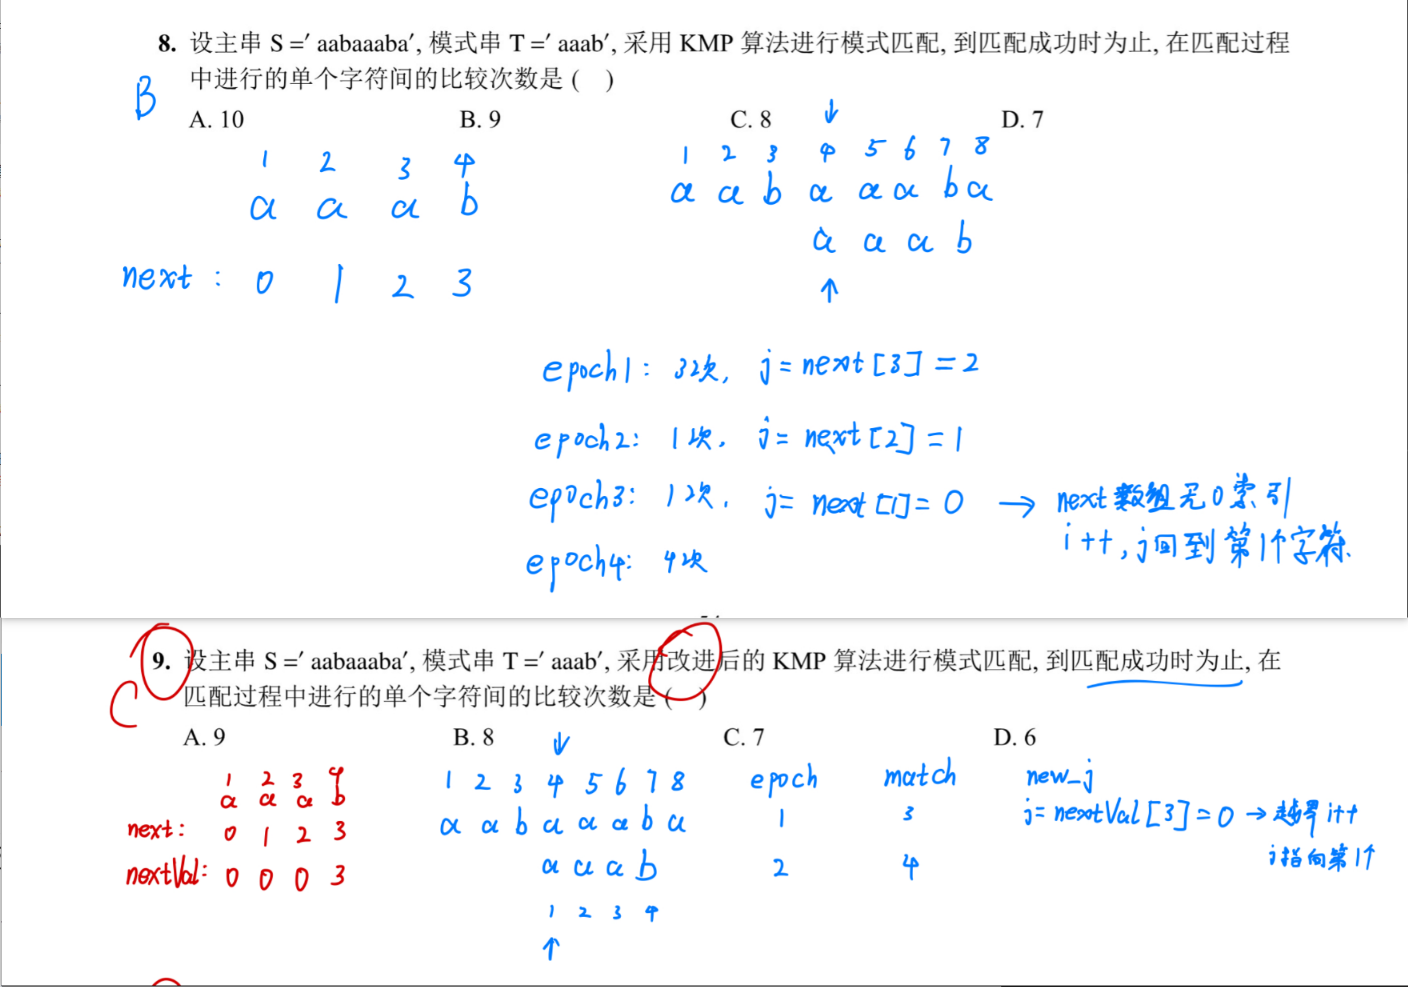 8. 设主串 S =′ aabaaaba′, 模式串 T =′ aaab′, 采用 KMP 算法进行模式匹配, 到匹配成功时为止, 在匹配过程
中进行的单个字符间的比较次数是 (  )
B
A. 10 B. 9 C. 8 D. 7
↓
1 2 3 4
a a a b
next : 0 1 2 3
1 2 3 4 5 6 7 8
a a b a a a b a
a a a b
↑
epoch1: 3次, j = next[3] = 2
epoch2: 1次, j = next[2] = 1
epoch3: 1次, j = next[1] = 0 → next数组无0索引
i++, j回到第1个字符.
epoch4: 4次
9. 设主串 S =′ aabaaaba′, 模式串 T =′ aaab′, 采用改进后的 KMP 算法进行模式匹配, 到匹配成功时为止, 在
匹配过程中进行的单个字符间的比较次数是 (  )
C
A. 9 B. 8 C. 7 D. 6
↓
1 2 3 4
a a a b
next: 0 1 2 3
nextVal: 0 0 0 3
1 2 3 4 5 6 7 8
a a b a a a b a
a a a b
1 2 3 4
↑
epoch match new_j
1 3 j = nextVal[3] = 0 → 越界 i++
j指向第1个
2 4